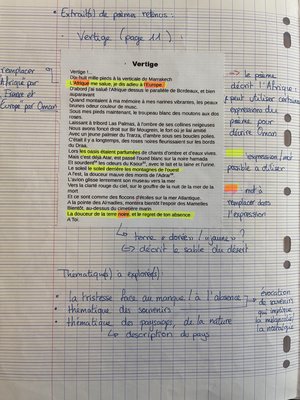 • Extrait(s) de poèmes retenus :
- Vertige (page 11) :
remplacer
Afrique par
Europe par Oman
Vertige
Vertige :
Dix-huit mille pieds à la verticale de Marrakech
L'Afrique me salue, je dis adieu à l'Europe.
D'abord j'ai salué l'Afrique dessus le parallèle de Bordeaux, et bien
auparavant
Quand montaient à ma mémoire à mes narines vibrantes, les peaux
brunes odeur couleur de musc.
Sous mes pieds maintenant, le troupeau blanc des moutons aux dos
roses.
Laissant à tribord Las Palmas, à l'ombre de ses collines
Nous avons foncé droit sur Bir Mougrein, le fort où je fus amitié
Avec un jeune palmier du Trarza, d'antan sous ses boucles poilues.
C'était il y a longtemps, les roses noires fleurissaient sur les bords
du Draa.
Lors les oasis étaient parfumées de chants d'ombre et d'eaux vives.
Mais c'est déjà Atar, est passé l'oued blanc sur la noire hamada
avec le lait et la laine et l'urine.
Le soleil le soleil derrière les montagnes de l'ouest
A l'est, la douceur mauve des monts de l'Adrar
L'avion glisse lentement son museau de requin
Vers la clarté rouge du ciel, sur le gouffre de la nuit de la mer de la
mort
Et ce sont comme des flocons d'étoiles sur la mer Atlantique.
A la pointe des Almadies, montera bientôt l'espoir des Mamelles
Bientôt, au-dessus du cimetière marin
La douceur de la terre noire, et le regret de ton absence
A Toi.
-> le poème
décrit l'Afrique
peut utiliser certaines
expressions du
poème pour
décrire Oman
expression/mot
possible à utiliser
mot à
remplacer dans
l'expression
↳ terre « dorée » / « jaune » ?
⇔ décrit le sable du désert
Thématique(s) à explorer(s) :
• la tristesse face au manque / à l'absence
• thématique des souvenirs
• thématique des paysages, de la nature
↳ description du pays
évocation
de souvenirs
qui implique
la mélancolie
la nostalgie